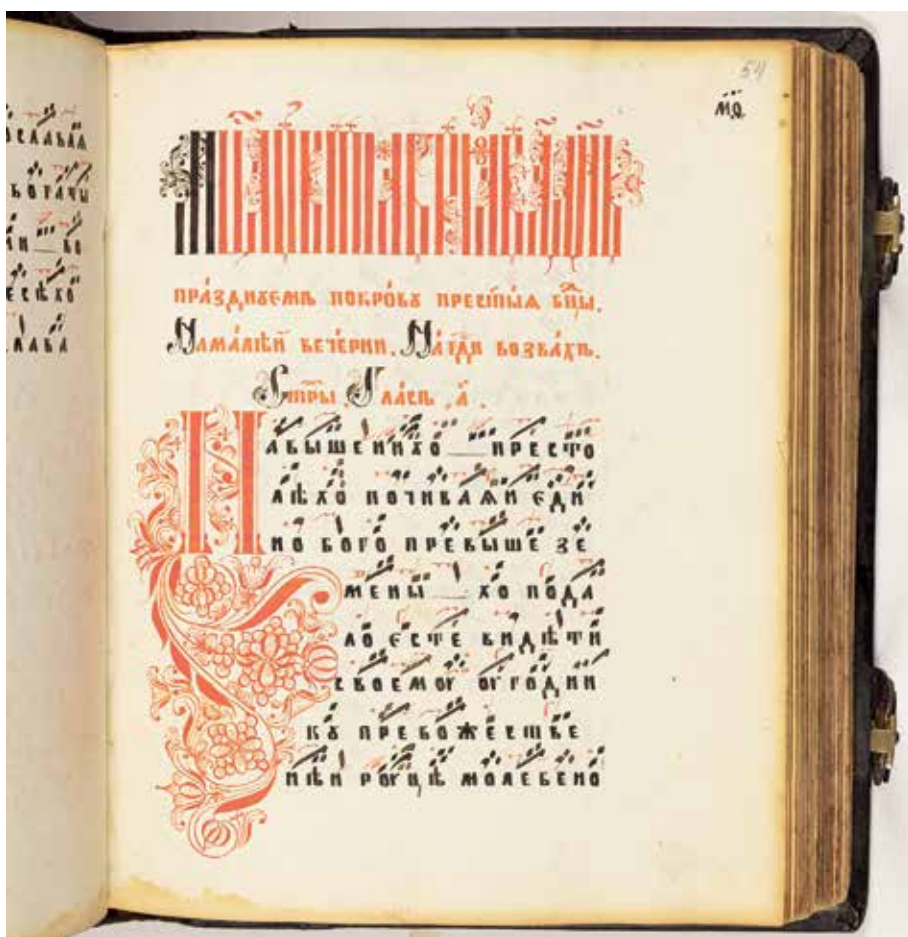 54
пра́зднꙋемъ покро́вꙋ прест҃ы́ѧ бц҃ы.
Нама́лѣй вече́рни. На́ гд҃и возвахъ.
Ст҃ры. Гла́съ .а҃.
Навышенихо престо
лѣхо почиваѧи єди
но бого превыше зе
мены хо пода
ло єсте видѣти
своемоу оугодни
кꙋ пребожестве
нѣи роуцѣ молебено